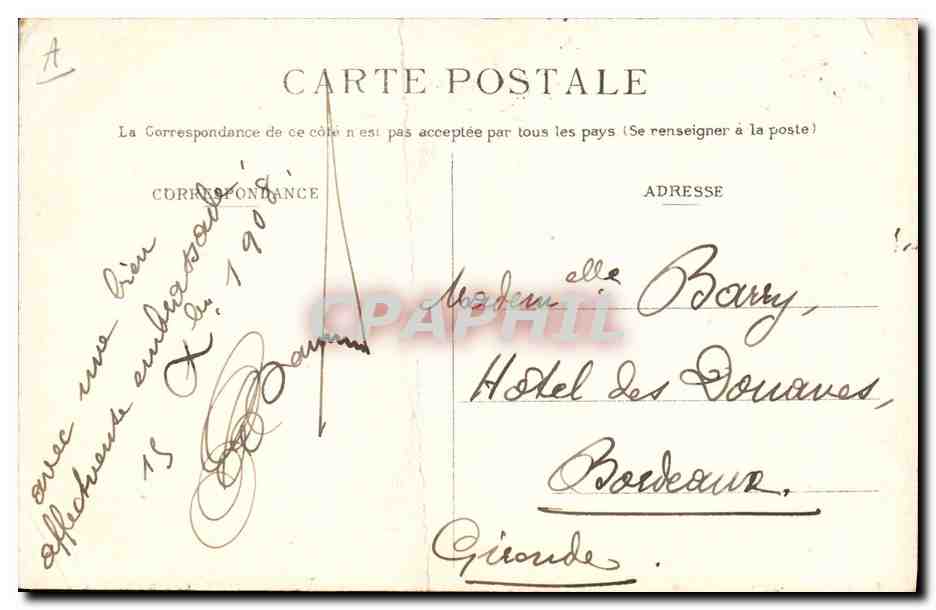 A
CARTE POSTALE
La Correspondance de ce côté n'est pas acceptée par tous les pays (Se renseigner à la poste)
CORRESPONDANCE
avec une bien
affectueuse embrassade
15 Xbre 1908
ADRESSE
Mademelle Barry,
Hôtel des Douanes,
Bordeaux.
Gironde.
CPAPHIL